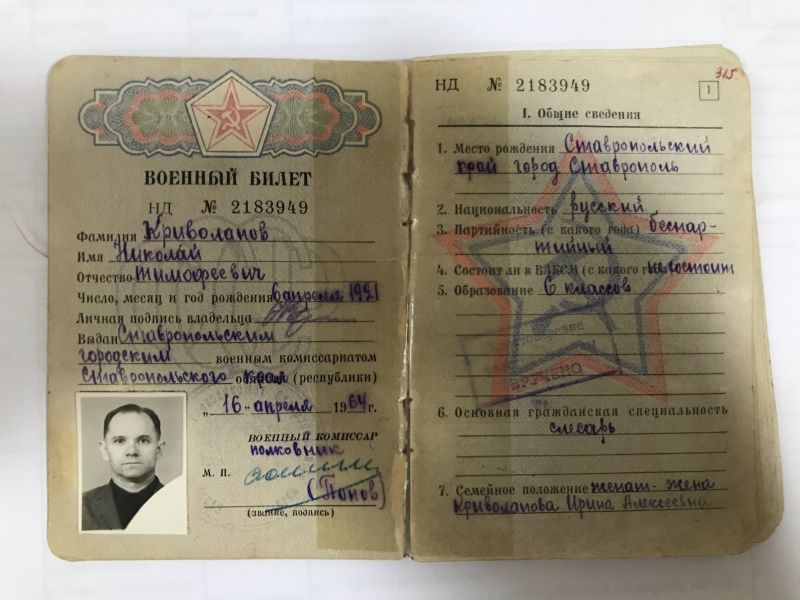 ВОЕННЫЙ БИЛЕТ
НД № 2183949
Фамилия Криволапов
Имя Николай
Отчество Тимофеевич
Число, месяц и год рождения 6 апреля 1921
Личная подпись владельца
Выдан Ставропольским
городским военным комиссариатом
Ставропольского области края (республики)
„16" апреля 1964 г.
ВОЕННЫЙ КОМИССАР
полковник
М. П.
(Попов)
(звание, подпись)
315
НД № 2183949
1
I. Общие сведения
1. Место рождения Ставропольский
край город Ставрополь
2. Национальность русский
3. Партийность (с какого года) беспар-
тийный
4. Состоит ли в ВЛКСМ (с какого не состоит
5. Образование 6 классов
ВРУЧЕНО
6. Основная гражданская специальность
слесарь
7. Семейное положение женат - жена
Криволапова Ирина Алексеевна